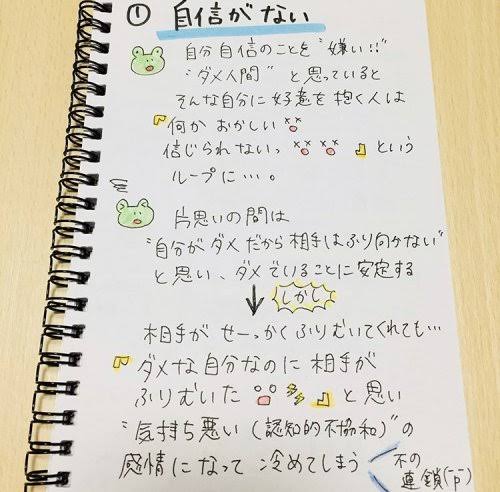 ① 自信がない
自分自信のことを"嫌い!!"
"ダメ人間"と思っていると
そんな自分に好意を抱く人は
『何かおかしい
信じられないっ』という
ループに…。
片思いの間は
"自分がダメだから相手はふり向かない"
と思い、ダメでいることに安定する
↓しかし
相手がせーっかくふりむいてくれても…
『ダメな自分なのに相手が
ふりむいた』と思い
"気持ち悪い(認知的不協和)"の
感情になって冷めてしまう
不の
連鎖(-p-)